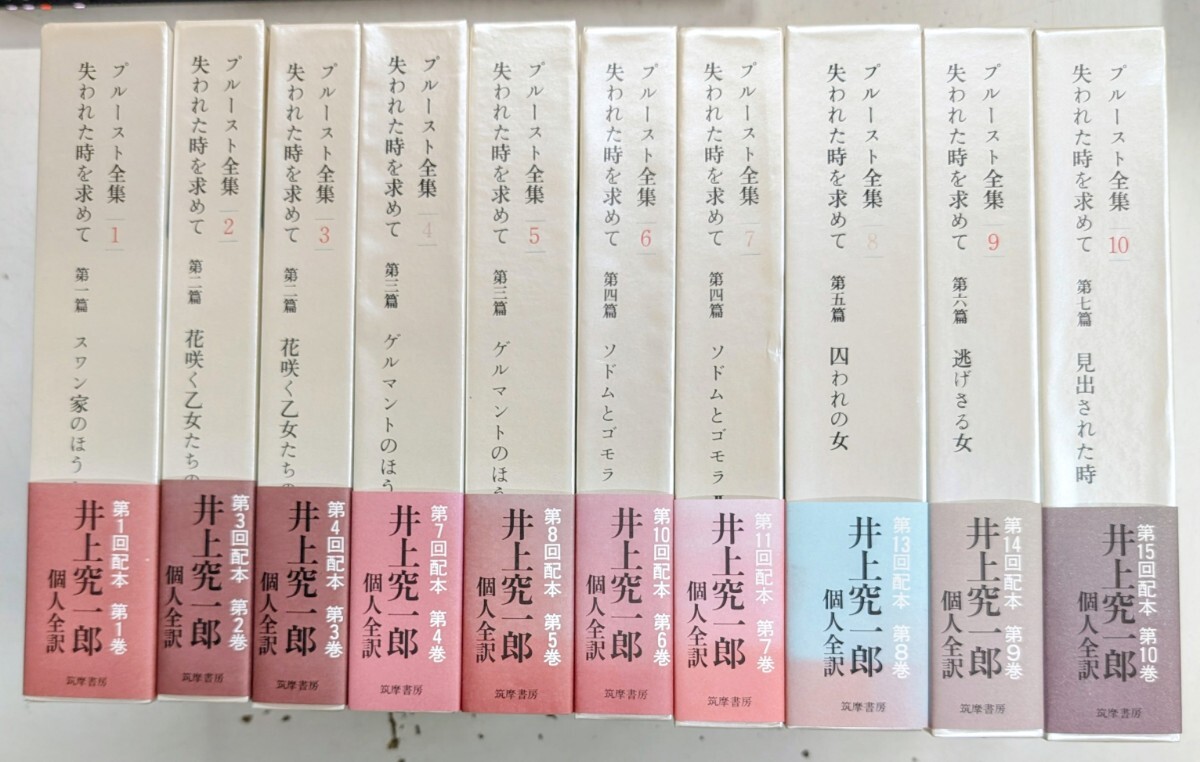 プルースト全集 1
失われた時を求めて 第一篇 スワン家のほう
第1回配本 第1巻
井上究一郎
個人全訳
筑摩書房
プルースト全集 2
失われた時を求めて 第二篇 花咲く乙女たちの
第3回配本 第2巻
井上究一郎
個人全訳
筑摩書房
プルースト全集 3
失われた時を求めて 第二篇 花咲く乙女たちの
第4回配本 第3巻
井上究一郎
個人全訳
筑摩書房
プルースト全集 4
失われた時を求めて 第三篇 ゲルマントのほう
第7回配本 第4巻
井上究一郎
個人全訳
筑摩書房
プルースト全集 5
失われた時を求めて 第三篇 ゲルマントのほう
第8回配本 第5巻
井上究一郎
個人全訳
筑摩書房
プルースト全集 6
失われた時を求めて 第四篇 ソドムとゴモラ
第10回配本 第6巻
井上究一郎
個人全訳
筑摩書房
プルースト全集 7
失われた時を求めて 第四篇 ソドムとゴモラ II
第11回配本 第7巻
井上究一郎
個人全訳
筑摩書房
プルースト全集 8
失われた時を求めて 第五篇 囚われの女
第13回配本 第8巻
井上究一郎
個人全訳
筑摩書房
プルースト全集 9
失われた時を求めて 第六篇 逃げさる女
第14回配本 第9巻
井上究一郎
個人全訳
筑摩書房
プルースト全集 10
失われた時を求めて 第七篇 見出された時
第15回配本 第10巻
井上究一郎
個人全訳
筑摩書房